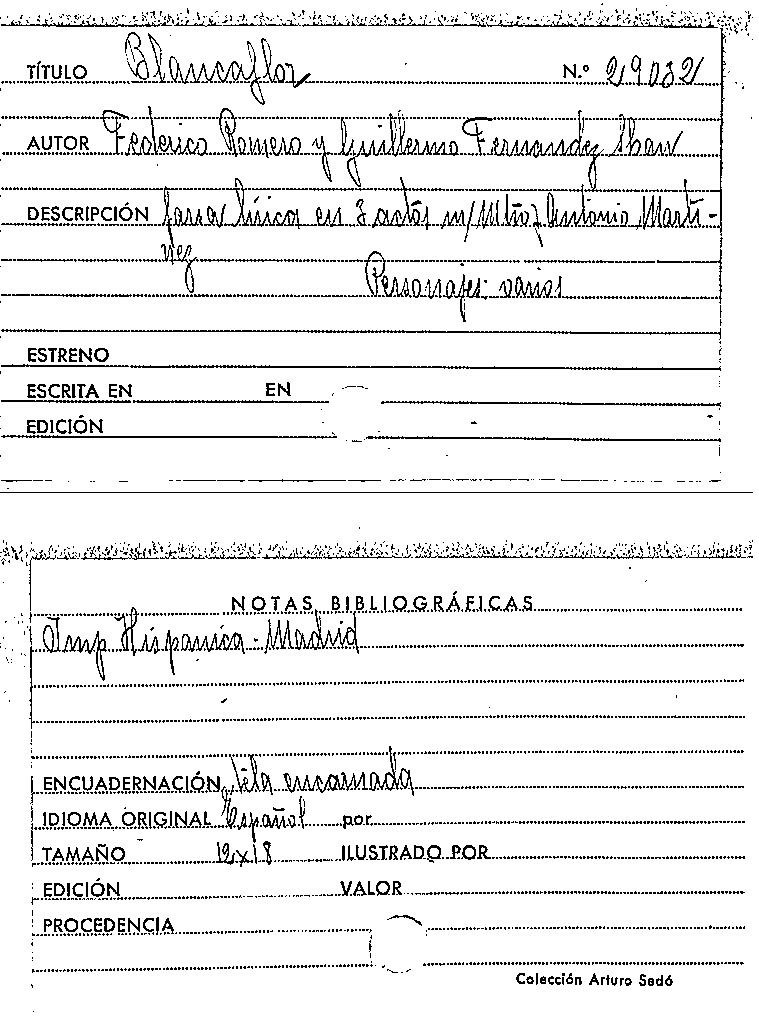 TÍTULO Blancaflor N.º 29032
AUTOR Federico Romero y Guillermo Fernandez Shaw
DESCRIPCIÓN farsa lírica en 3 actos m/ Mtro, Antonio Martí-
nez
Personajes: varios
ESTRENO
ESCRITA EN EN
EDICIÓN
NOTAS BIBLIOGRÁFICAS
Imp Hispanica - Madrid
ENCUADERNACIÓN, tela encarnada
IDIOMA ORIGINAL Español por
TAMAÑO 12x18 ILUSTRADO POR
EDICIÓN VALOR
PROCEDENCIA
Colección Arturo Sedó